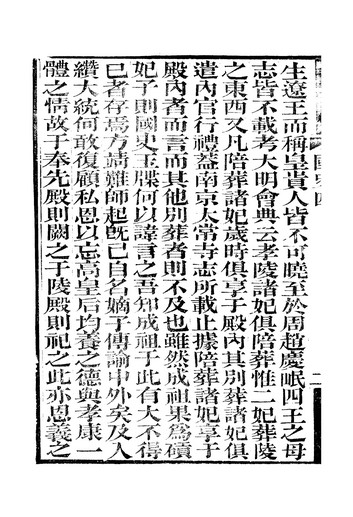 生遼王而稱皇貴人皆不可曉至於周趙慶岷四王之母
志皆不載考大明會典云孝陵諸妃俱陪葬惟二妃葬陵
之東西又凡陪葬諸妃歲時俱享于殿內其別葬諸妃俱
遣內官行禮蓋南京太常寺志所載止據陪葬諸妃享于
殿內者而言而其他別葬者則不及也雖然成祖果為碩
妃子則國史玉牒何以諱言之吾知成祖于此有大不得
已者存焉方靖難師起旣已自名嫡子傳諭中外矣及入
纘大統何敢復顧私恩以忘高皇后均養之德與孝康一
體之情故于奉先殿則闕之于陵殿則祀之此亦恩義之
二